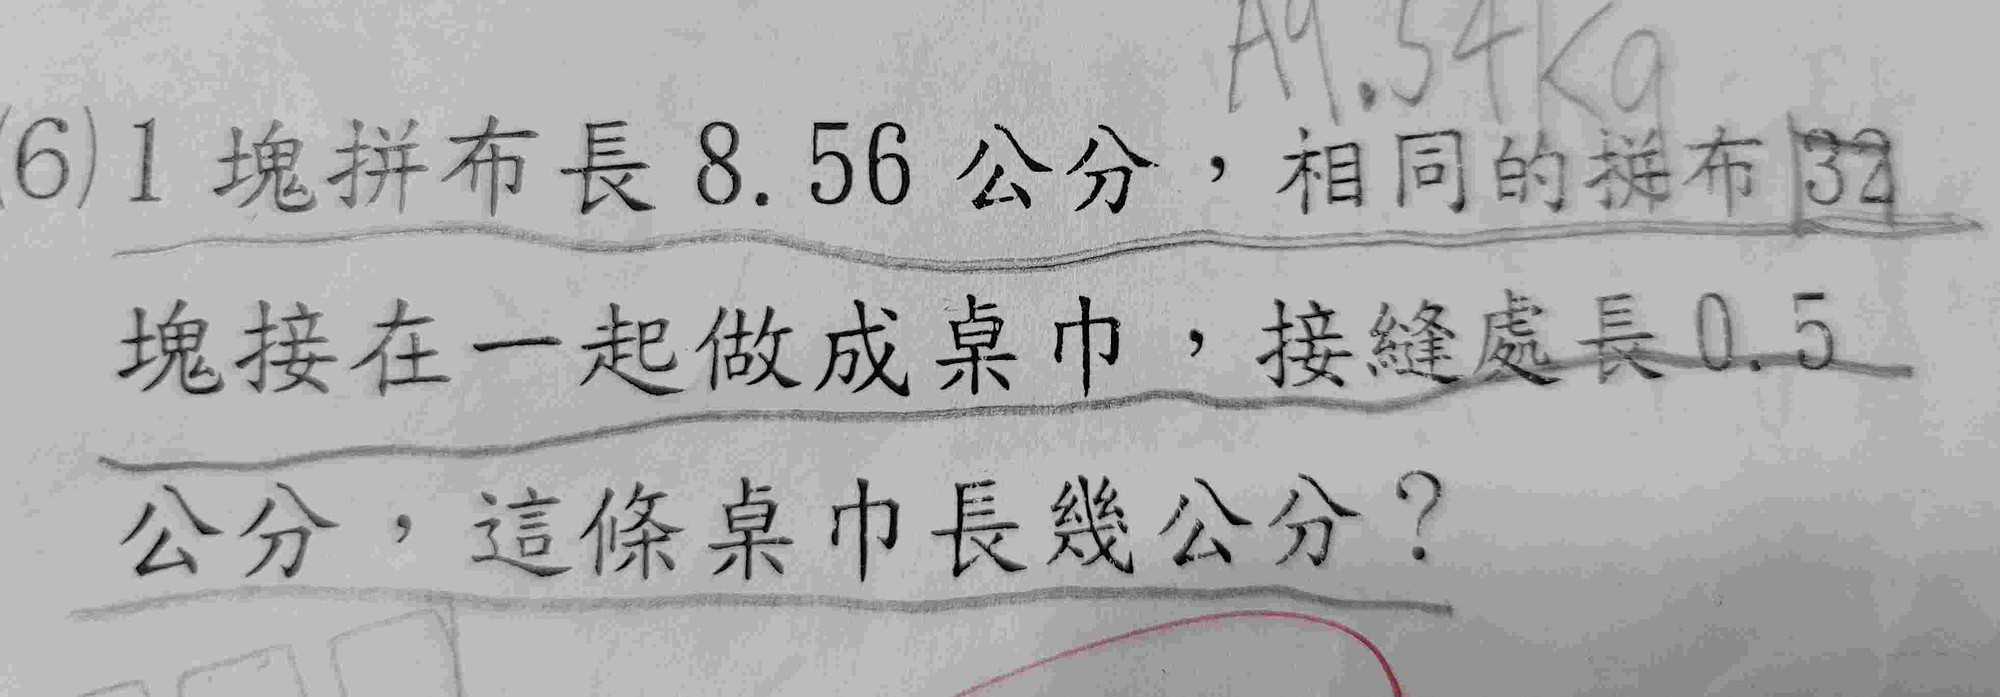 A9.54Kg
(6) 1 塊拼布長 8.56 公分，相同的拼布 32
塊接在一起做成桌巾，接縫處長 0.5
公分，這條桌巾長幾公分？